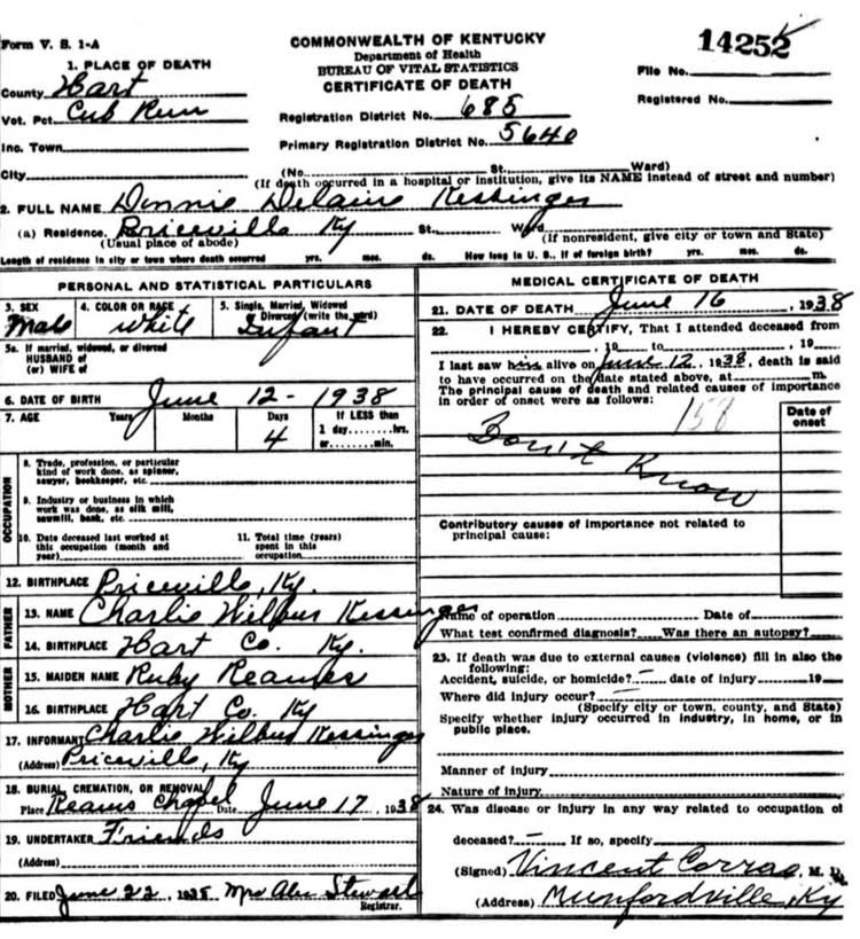 Form V. S. 1-A
COMMONWEALTH OF KENTUCKY
Department of Health
BUREAU OF VITAL STATISTICS
CERTIFICATE OF DEATH
14252
File No.
Registered No.
1. PLACE OF DEATH
County Hart
Vot. Pct. Cub Run
Inc. Town
City
Registration District No. 685
Primary Registration District No. 5640
(No. St. Ward)
(If death occurred in a hospital or institution, give its NAME instead of street and number)
2. FULL NAME Donnie Kessinger
(a) Residence. Priceville Ky St. Ward
(Usual place of abode)
(If nonresident, give city or town and State)
Length of residence in city or town where death occurred yrs. mos. ds. How long in U. S., if of foreign birth? yrs. mos. ds.
PERSONAL AND STATISTICAL PARTICULARS
3. SEX
Male
4. COLOR OR RACE
White
5. Single, Married, Widowed
or Divorced (write the word)
Infant
5a. If married, widowed, or divorced
HUSBAND of
(or) WIFE of
6. DATE OF BIRTH June 12 - 1938
7. AGE Years Months Days If LESS than
4 1 day........hrs.
or........min.
OCCUPATION
8. Trade, profession, or particular
kind of work done, as spinner,
sawyer, bookkeeper, etc.
9. Industry or business in which
work was done, as silk mill,
sawmill, bank, etc.
10. Date deceased last worked at
this occupation (month and
year)
11. Total time (years)
spent in this
occupation
12. BIRTHPLACE Priceville, Ky.
FATHER
13. NAME Charlie Wilbur Kessinger
14. BIRTHPLACE Hart Co. Ky.
MOTHER
15. MAIDEN NAME Ruby Reams
16. BIRTHPLACE Hart Co. Ky
17. INFORMANT Charlie Wilbur Kessinger
(Address) Priceville, Ky
18. BURIAL, CREMATION, OR REMOVAL
Place Reams Chapel Date June 17, 1938
19. UNDERTAKER Friends
(Address)
20. FILED June 22, 1938 Mrs Stewart
Registrar.
MEDICAL CERTIFICATE OF DEATH
21. DATE OF DEATH June 16, 1938
22. I HEREBY CERTIFY, That I attended deceased from
, 19 to , 19
I last saw him alive on June 12, 1938, death is said
to have occurred on the date stated above, at m.
The principal cause of death and related causes of importance
in order of onset were as follows:
Date of
onset
158
Don't Know
Contributory causes of importance not related to
principal cause:
Name of operation Date of
What test confirmed diagnosis? Was there an autopsy?
23. If death was due to external causes (violence) fill in also the
following:
Accident, suicide, or homicide? — date of injury 19
Where did injury occur? —
(Specify city or town, county, and State)
Specify whether injury occurred in industry, in home, or in
public place.
Manner of injury
Nature of injury
24. Was disease or injury in any way related to occupation of
deceased? — If so, specify
(Signed) Vincent Corrao, M. D.
(Address) Munfordville, Ky